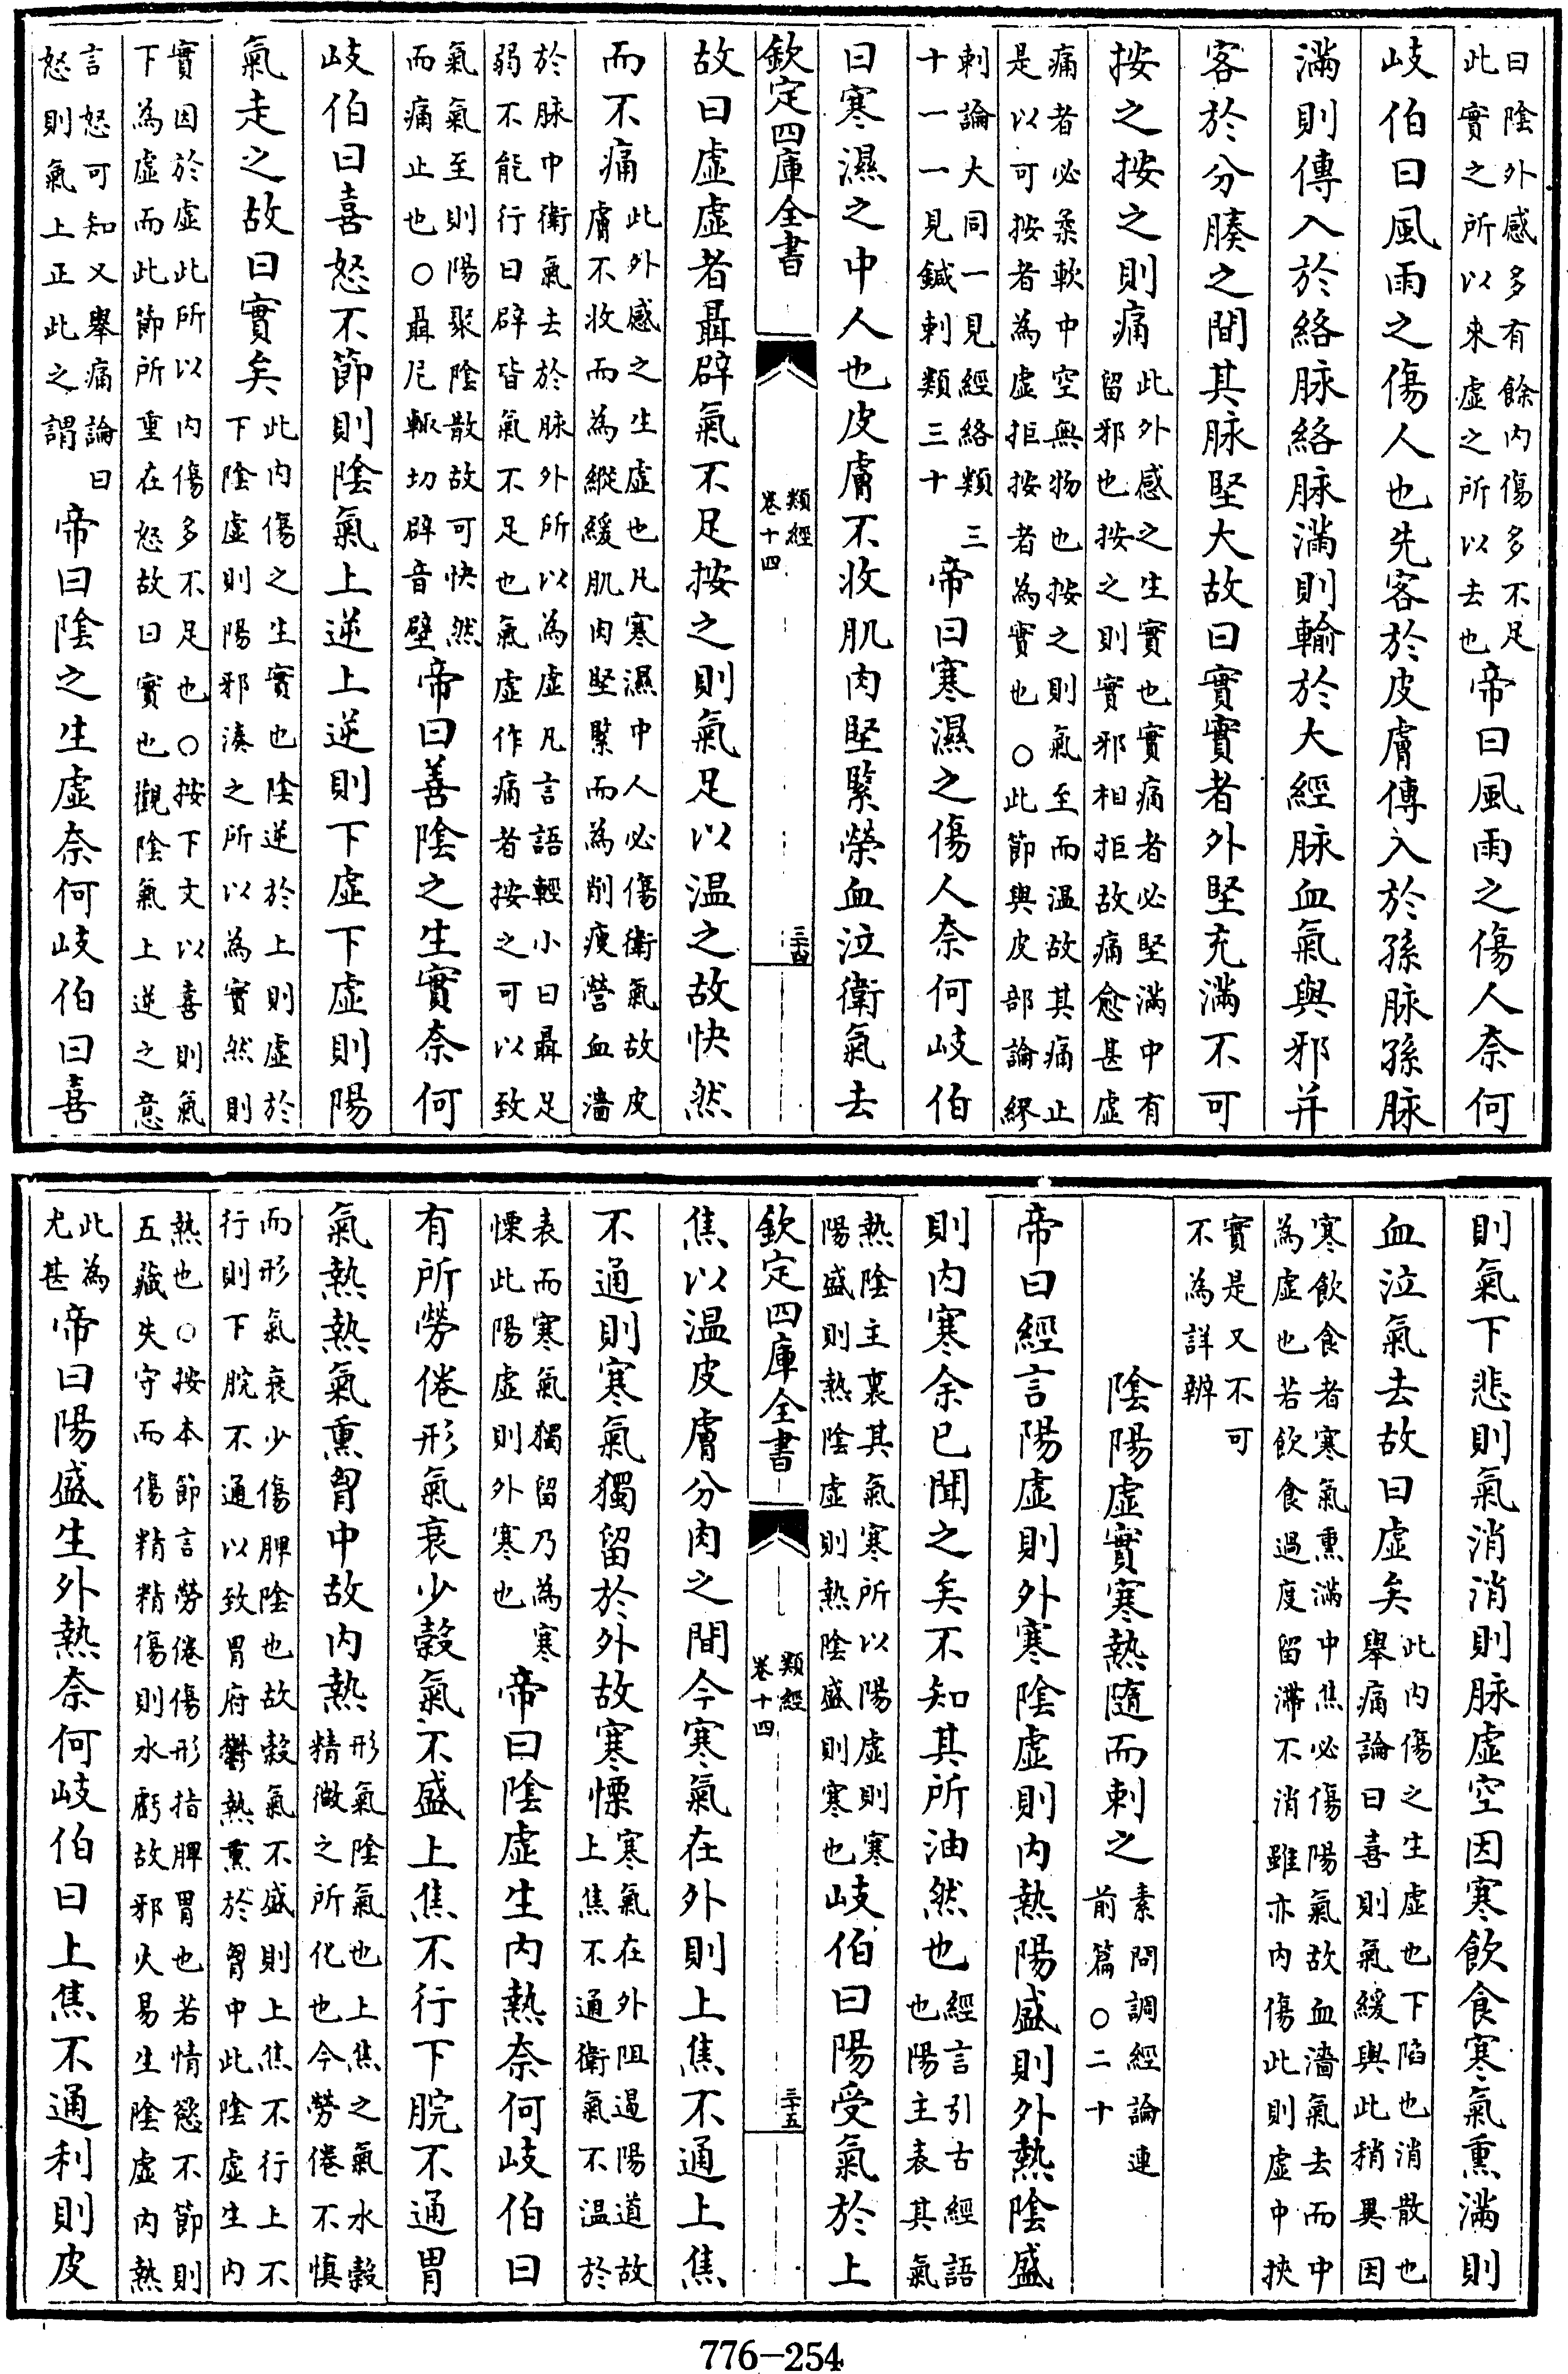 曰陰外感多有餘內傷多不足
此實之所以來虛之所以去也
帝曰風雨之傷人奈何
岐伯曰風雨之傷人也先客於皮膚傳入於孫脉孫脉
滿則傳入於絡脉絡脉滿則輸於大經脉血氣與邪并
客於分腠之間其脉堅大故曰實實者外堅充滿不可
按之按之則痛
此外感之生實也實痛者必堅滿中有
留邪也按之則實邪相拒故痛愈甚虛
痛者必柔軟中空無物也按之則氣至而温故其痛止
是以可按者為虛拒按者為實也○此節與皮部論繆
刺論大同一見經絡類三
十一一見鍼刺類三十
帝曰寒濕之傷人奈何岐伯
曰寒濕之中人也皮膚不收肌肉堅緊榮血泣衛氣去
欽定四庫全書
類經
卷十四
三十四
故曰虛虛者聶辟氣不足按之則氣足以温之故快然
而不痛
此外感之生虛也凡寒濕中人必傷衛氣故皮
膚不收而為縱緩肌肉堅緊而為削瘦營血濇
於脉中衛氣去於脉外所以為虛凡言語輕小曰聶足
弱不能行曰辟皆氣不足也氣虛作痛者按之可以致
氣氣至則陽聚陰散故可快然
而痛止也○聶尼輒切辟音壁
帝曰善陰之生實奈何
岐伯曰喜怒不節則陰氣上逆上逆則下虛下虛則陽
氣走之故曰實矣
此內傷之生實也陰逆於上則虛於
下陰虛則陽邪湊之所以為實然則
實因於虛此所以內傷多不足也○按下文以喜則氣
下為虛而此節所重在怒故曰實也觀陰氣上逆之意
言怒可知又舉痛論曰
怒則氣上正此之謂
帝曰陰之生虛奈何岐伯曰喜
則氣下悲則氣消消則脉虛空因寒飲食寒氣熏滿則
血泣氣去故曰虛矣
此內傷之生虛也下陷也消散也
舉痛論曰喜則氣緩與此稍異因
寒飲食者寒氣熏滿中焦必傷陽氣故血濇氣去而中
為虛也若飲食過度留滯不消雖亦內傷此則虛中挾
實是又不可
不為詳辨
陰陽虛實寒熱隨而刺之
素問調經論連
前篇○二十
帝曰經言陽虛則外寒陰虛則內熱陽盛則外熱陰盛
則內寒余已聞之矣不知其所油然也
經言引古經語
也陽主表其氣
熱陰主裏其氣寒所以陽虛則寒
陽盛則熱陰虛則熱陰盛則寒也
岐伯曰陽受氣於上
欽定四庫全書
類經
卷十四
三十五
焦以温皮膚分肉之間今寒氣在外則上焦不通上焦
不通則寒氣獨留於外故寒慄
寒氣在外阻遏陽道故
上焦不通衛氣不温於
表而寒氣獨留乃為寒
慄此陽虛則外寒也
帝曰陰虛生內熱奈何岐伯曰
有所勞倦形氣衰少榖氣不盛上焦不行下脘不通胃
氣熱熱氣熏胷中故內熱
形氣陰氣也上焦之氣水榖
精微之所化也今勞倦不慎
而形氣衰少傷脾陰也故榖氣不盛則上焦不行上不
行則下脘不通以致胃府鬱熱熏於胷中此陰虛生內
熱也○按本節言勞倦傷形指脾胃也若情慾不節則
五藏失守而傷精精傷則水虧故邪火易生陰虛內熱
此為
尤甚
帝曰陽盛生外熱奈何岐伯曰上焦不通利則皮
776-254